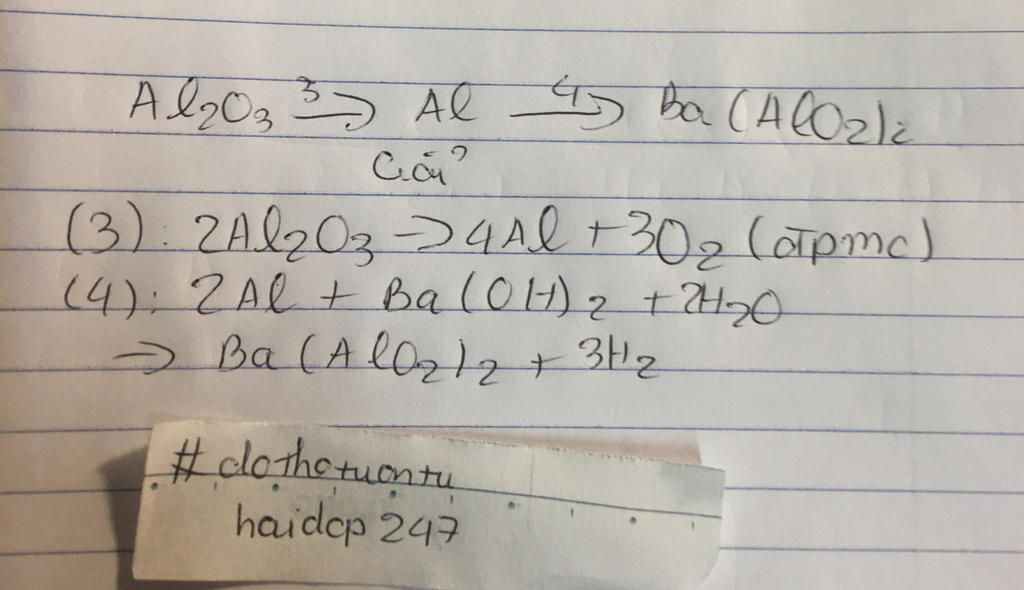 Al₂O₃ →³ Al →⁴ Ba(AlO₂)₂
Giải
(3): 2Al₂O₃ → 4Al + 3O₂ (đpnc)
(4): 2Al + Ba(OH)₂ + 2H₂O
→ Ba(AlO₂)₂ + 3H₂
#dothotuontu
haidcp 247